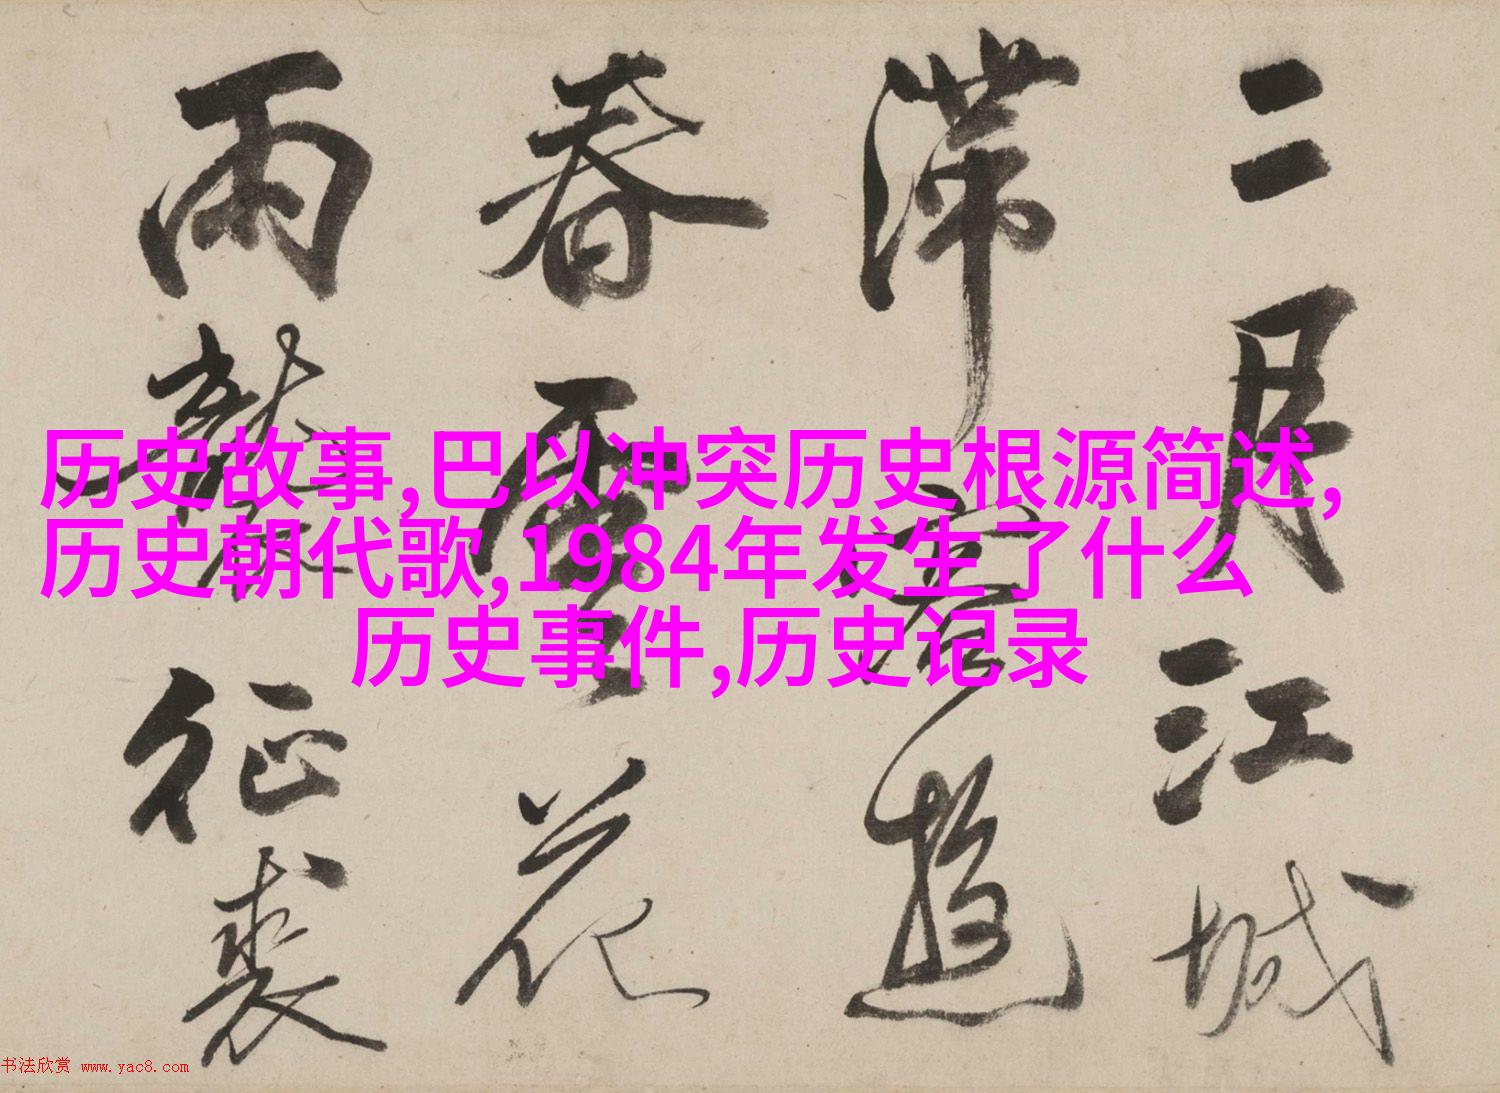 二月江城
滞客游
春云花
雨鬓征裘
历史故事,巴以冲突历史根源简述,
历史朝代歌,1984年发生了什么
历史事件,历史记录
书法欣赏 www.yac8.com